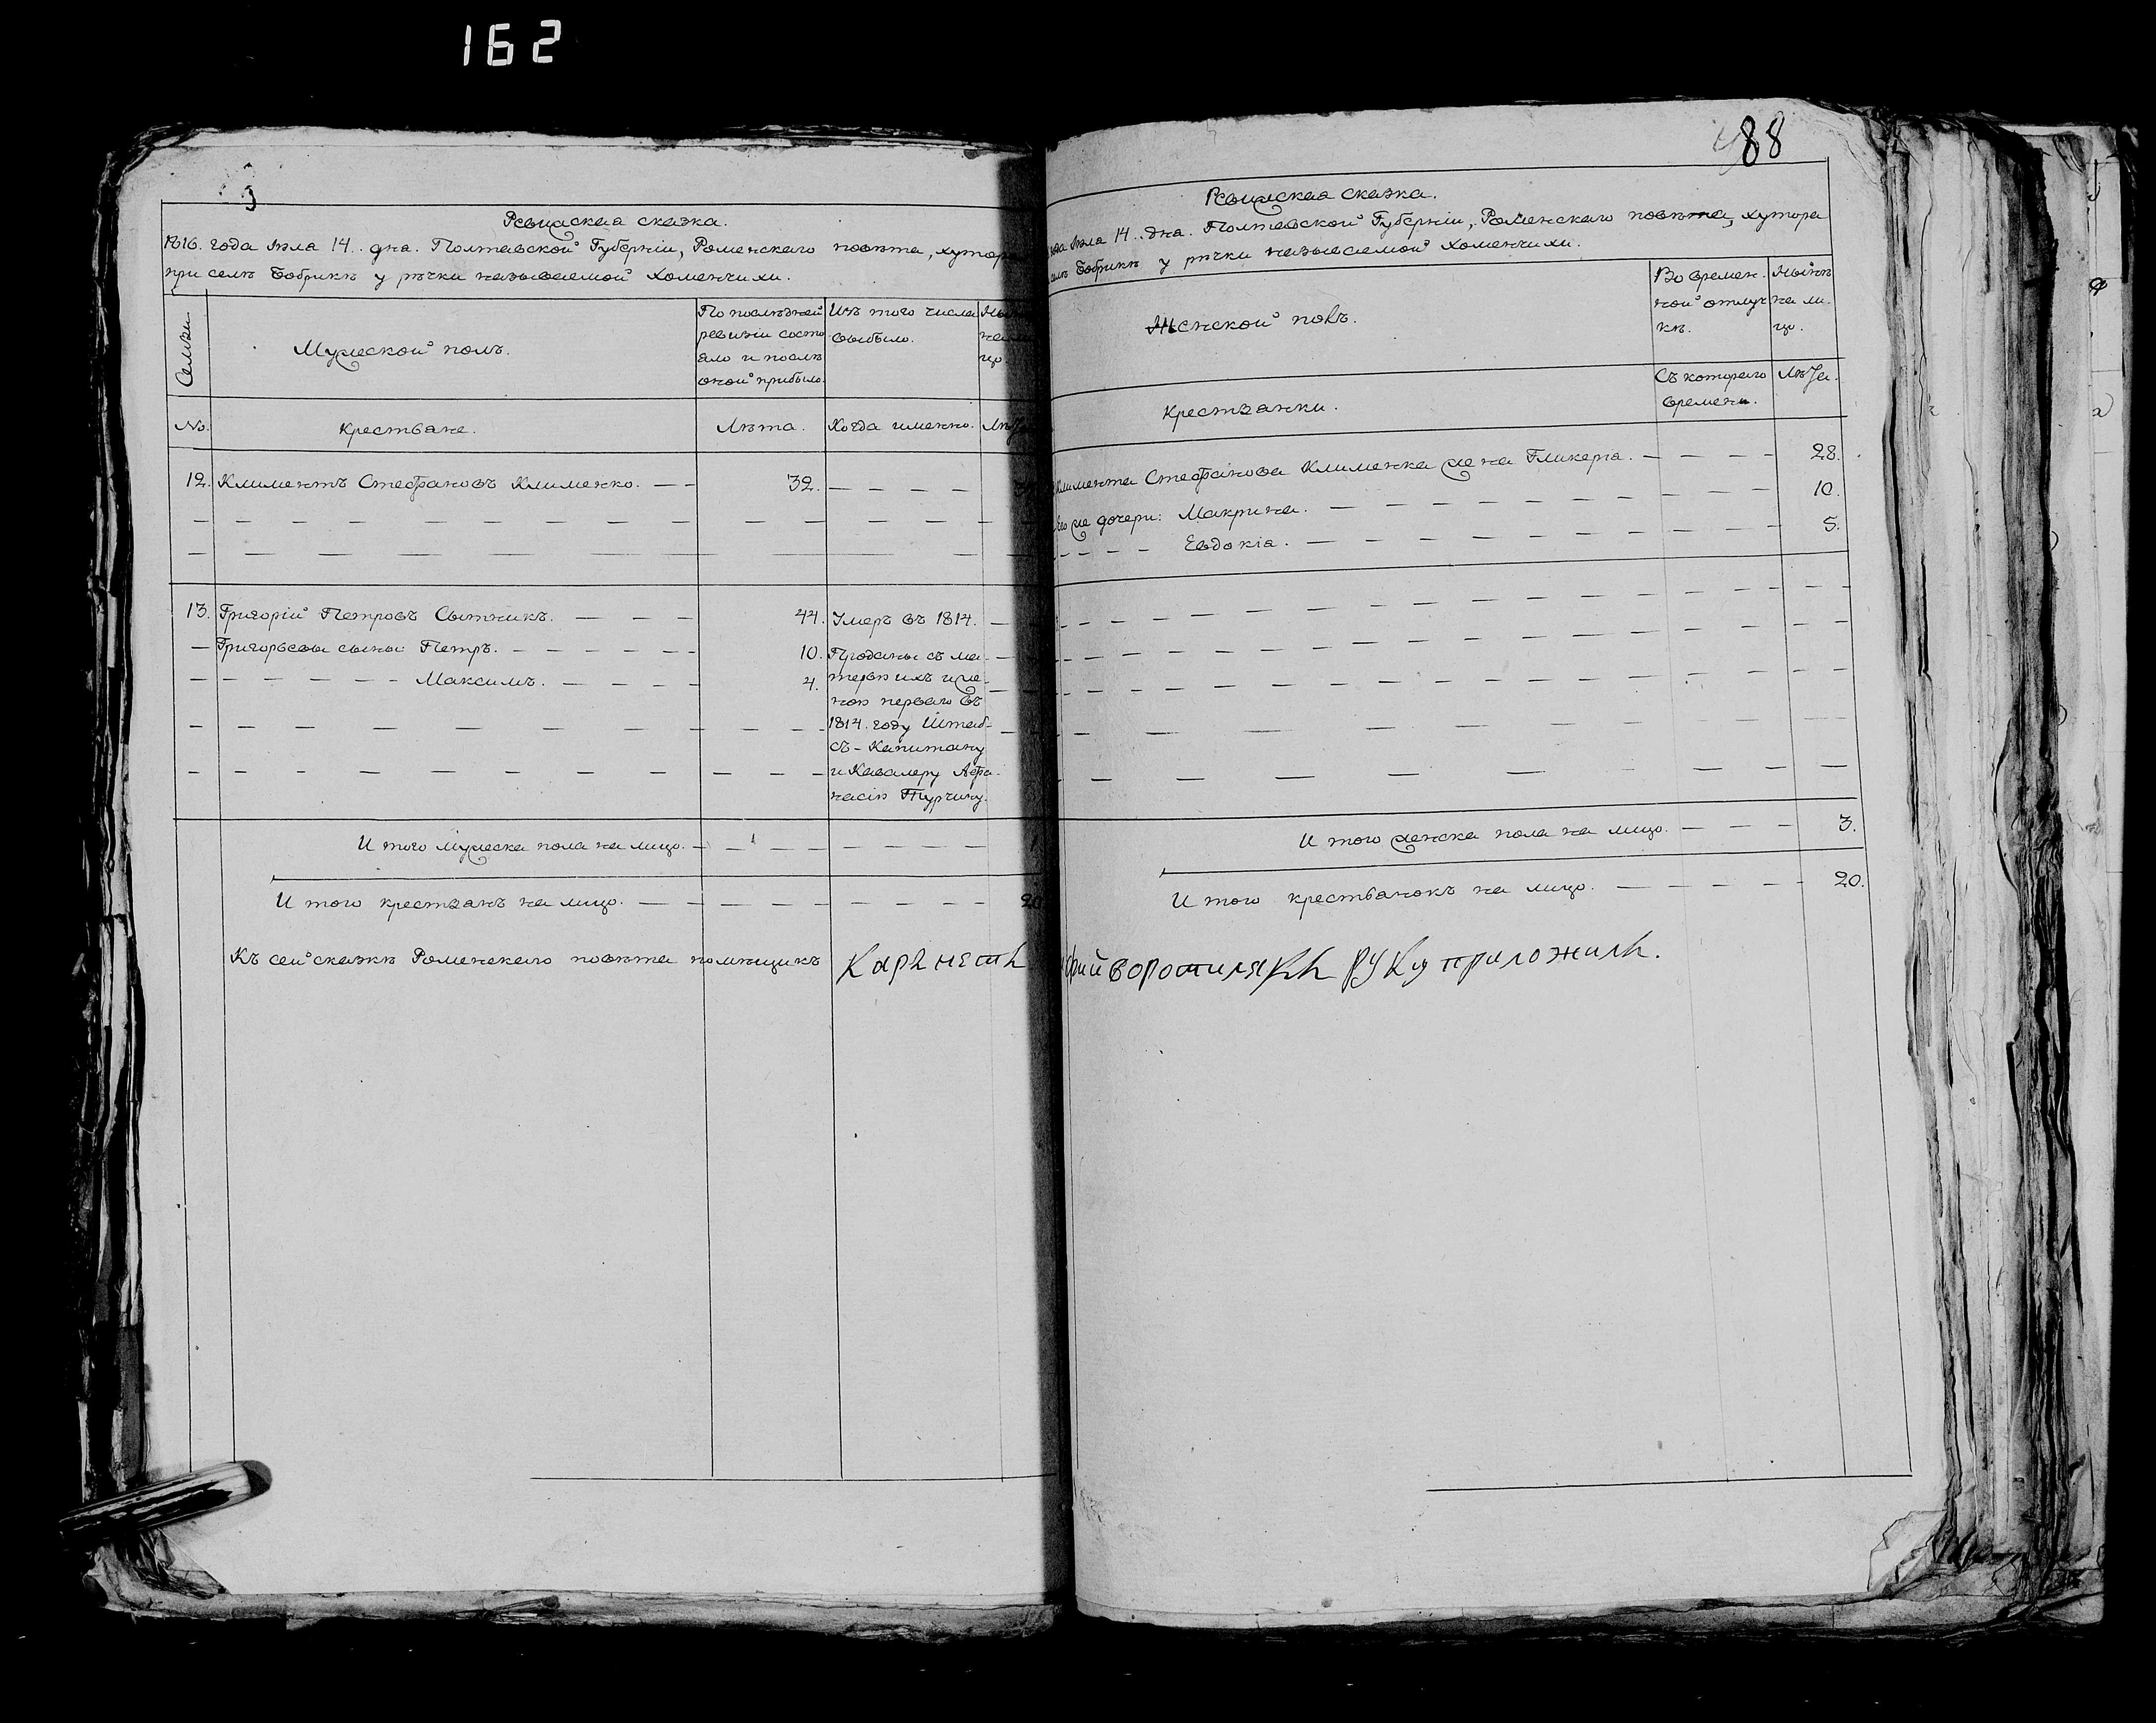 162
Ревижская сказка.
1816. года Маія 14. дня. Полтавской Губерніи, Роменскаго повѣта, хутора
при селѣ Бобрикѣ у рѣчки называемой Хоменчихи.
Семьи
Мужеской полъ.
По послѣдней
ревизіи состо
яло и послѣ
оной прибыло.
Изъ того числа
выбыло.
№.
Крестьяне.
Лѣта.
Когда именно.
12. Климентъ Стефановъ Клименко. 32.
13. Григорій Петровъ Сытникъ. 44. Умеръ въ 1814.
Григорьевы сыны: Петръ. 10. Проданы съ ма-
Максимъ. 4. терью ихъ и же-
ною перваго въ
1814. году Штаб-
съ-Капитану
и Кавалеру Афа-
насію Турчину.
И того мужеска пола на лицо. 1
И того крестьянъ на лицо. 20
Къ сей сказкѣ Роменскаго повѣта помѣщикъ
88
Ревижская сказка.
года Маія 14. дня. Полтавской Губерніи, Роменскаго повѣта, хутора
селѣ Бобрикѣ у рѣчки называемой Хоменчихи.
Женской полъ.
Во времен-
ной отлуч
кѣ.
Нынѣ
на ли-
цо.
Крестьянки.
Съ котораго
времени.
Лѣта.
Климента Стефанова Клименка жена Гликерія. 28.
его же дочери: Макрина. 10.
Евдокія. 5.
И того женска пола на лицо. 3.
И того крестьянокъ на лицо. 20.
руку приложилъ.